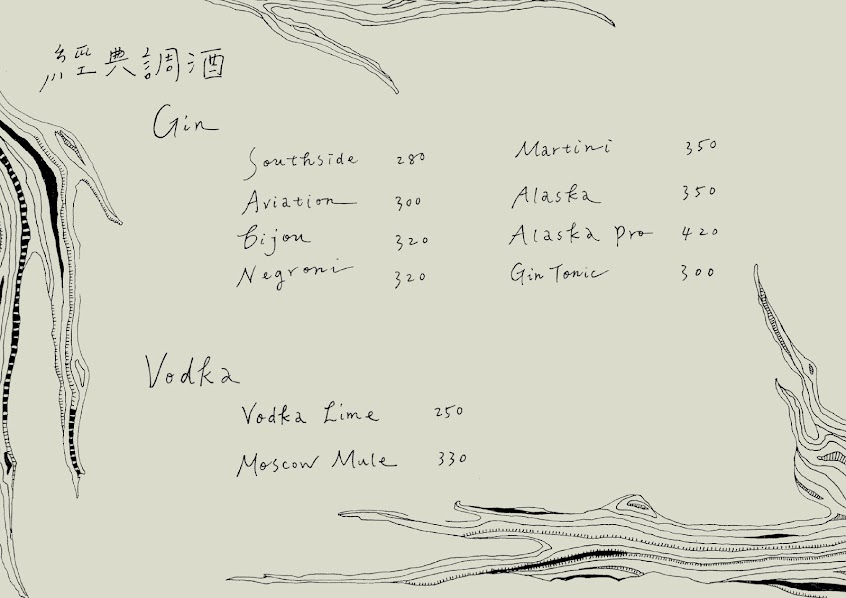 經典調酒
Gin
Southside 280
Aviation 300
Bijou 320
Negroni 320
Martini 350
Alaska 350
Alaska Pro 420
Gin Tonic 300
Vodka
Vodka Lime 250
Moscow Mule 330